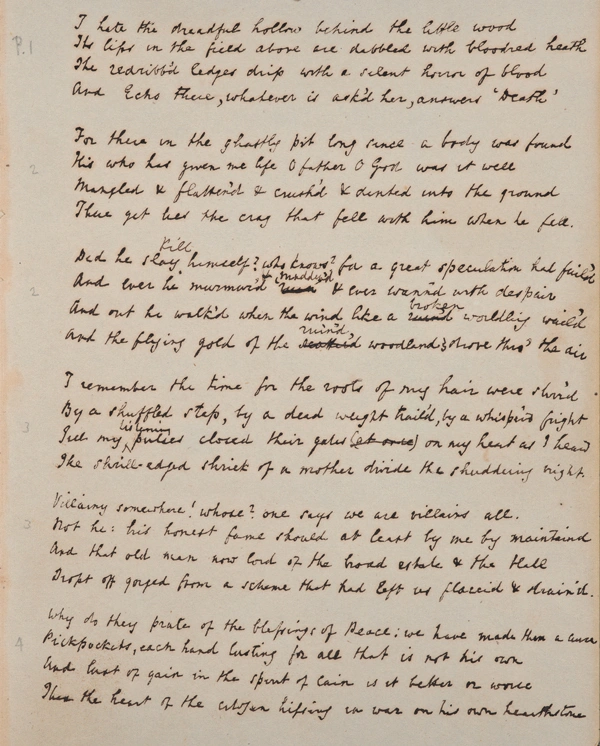 P.1
I hate the dreadful hollow behind the little wood
Its lips in the field above are dabbled with bloodred heath
The redribb'd ledges drip with a silent horror of blood
And Echo there, whatever is ask'd her, answers 'Death'
For there in the ghastly pit long since a body was found
2
His who has given me life O father O God was it well
Mangled & flatten'd & crush'd & dinted into the ground
There yet lies the crag that fell with him when he fell.
Kill
Did he slay himself? who knows? for a great speculation had fail'd
& madden'd
2
And ever he murmur'd & ever wann'd with despair
broken
And out he walk'd when the wind like a ruin'd worldling wail'd
ruin'd
And the flying gold of the woodlands drove thro' the air
I remember the time for the roots of my hair were stirr'd
By a shuffled step, by a dead weight trail'd, by a whisper'd fright
3
listening
my pulses closed their gates (at once) on my heart as I heard
The shrill-edged shriek of a mother divide the shuddering night.
Villainy somewhere! whose? one says we are villains all.
3
Not he: his honest fame should at least by me by maintaind
And that old man now lord of the broad estate & the Hall
Dropt off gorged from a scheme that had left us flaccid & drain'd.
Why do they prate of the blessings of Peace: we have made them a curse
4
Pickpockets, each hand lusting for all that is not his own
And lust of gain in the spirit of Cain is it better or worse
Than the heart of the citizen hissing in war on his own hearthstone